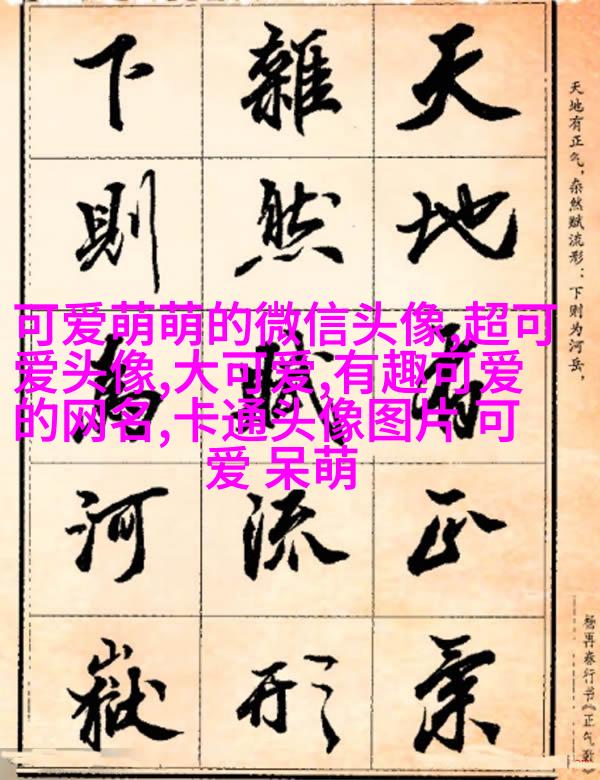 天地有正气，杂然赋流形：下则为河岳，
杨再春行书《正气歌》
天地有正氣
雜然賦流形
下則為河嶽
可爱萌萌的微信头像,超可
爱头像,大可爱,有趣可爱
的网名,卡通头像图片 可
爱 呆萌